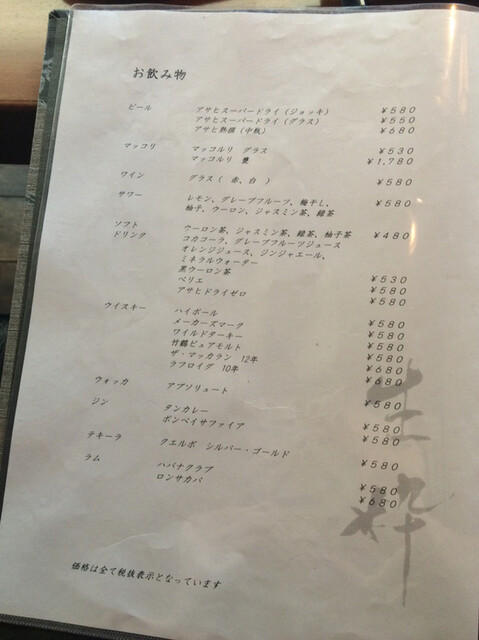 お飲み物
ビール アサヒスーパードライ（ジョッキ） ¥580
アサヒスーパードライ（グラス） ¥550
アサヒ熟撰（中瓶） ¥680
マッコリ マッコルリ グラス ¥530
マッコルリ 甕 ¥1,780
ワイン グラス（ 赤、白 ） ¥580
サワー レモン、グレープフルーツ、梅干し、 ¥580
柚子、ウーロン、ジャスミン茶、緑茶
ソフト
ドリンク ウーロン茶、ジャスミン茶、緑茶、柚子茶 ¥480
コカコーラ、グレープフルーツジュース
オレンジジュース、ジンジャエール、
ミネラルウォーター
黒ウーロン茶 ¥530
ペリエ ¥580
アサヒドライゼロ ¥580
ウイスキー ハイボール ¥580
メーカーズマーク ¥580
ワイルドターキー ¥580
竹鶴ピュアモルト ¥580
ザ・マッカラン 12年 ¥680
ラフロイグ 10年 ¥680
ウォッカ アブソリュート ¥580
ジン タンカレー ¥580
ボンベイサファイア ¥580
テキーラ クエルボ シルバー・ゴールド ¥580
ラム ハバナクラブ ¥580
ロンサカパ ¥680
価格は全て税抜表示となっています